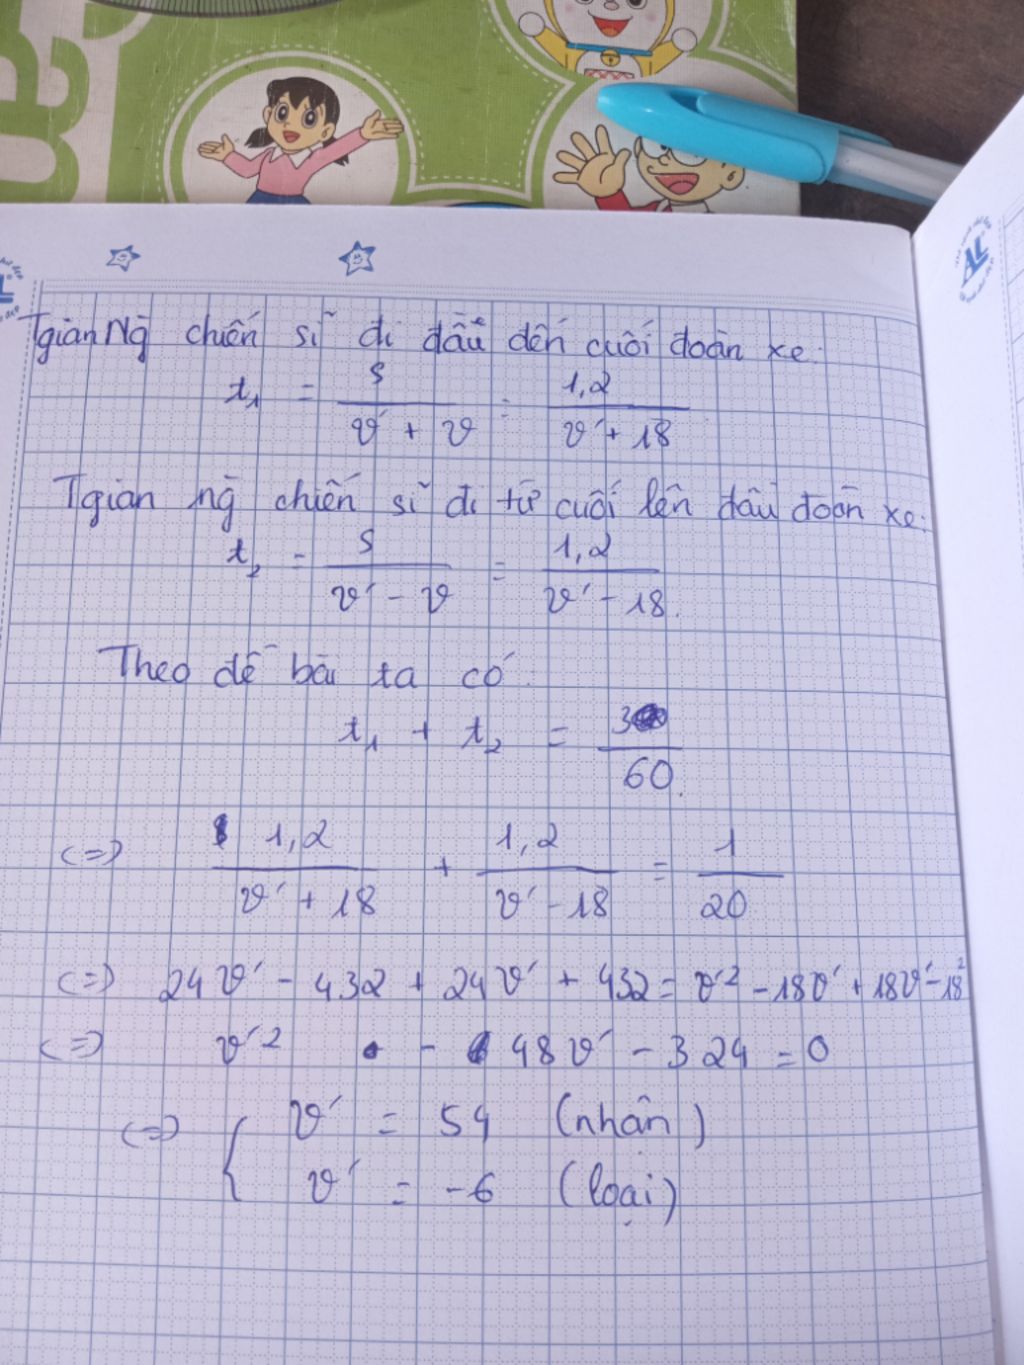 Tgian Ng chiến sĩ đi đầu đến cuối đoàn xe:
t₁ = s/(v' + v) = 1,2/(v' + 18)
Tgian ng chiến sĩ đi từ cuối lên đầu đoàn xe:
t₂ = s/(v' - v) = 1,2/(v' - 18).
Theo đề bài ta có
t₁ + t₂ = 3/60.
(=) 1,2/(v' + 18) + 1,2/(v' - 18) = 1/20
(=) 24v' - 432 + 24v' + 432 = v'² - 18v' + 18v' - 18²
(=) v'² - 48v' - 324 = 0
(=) { v' = 54 (nhận)
v' = -6 (loại)